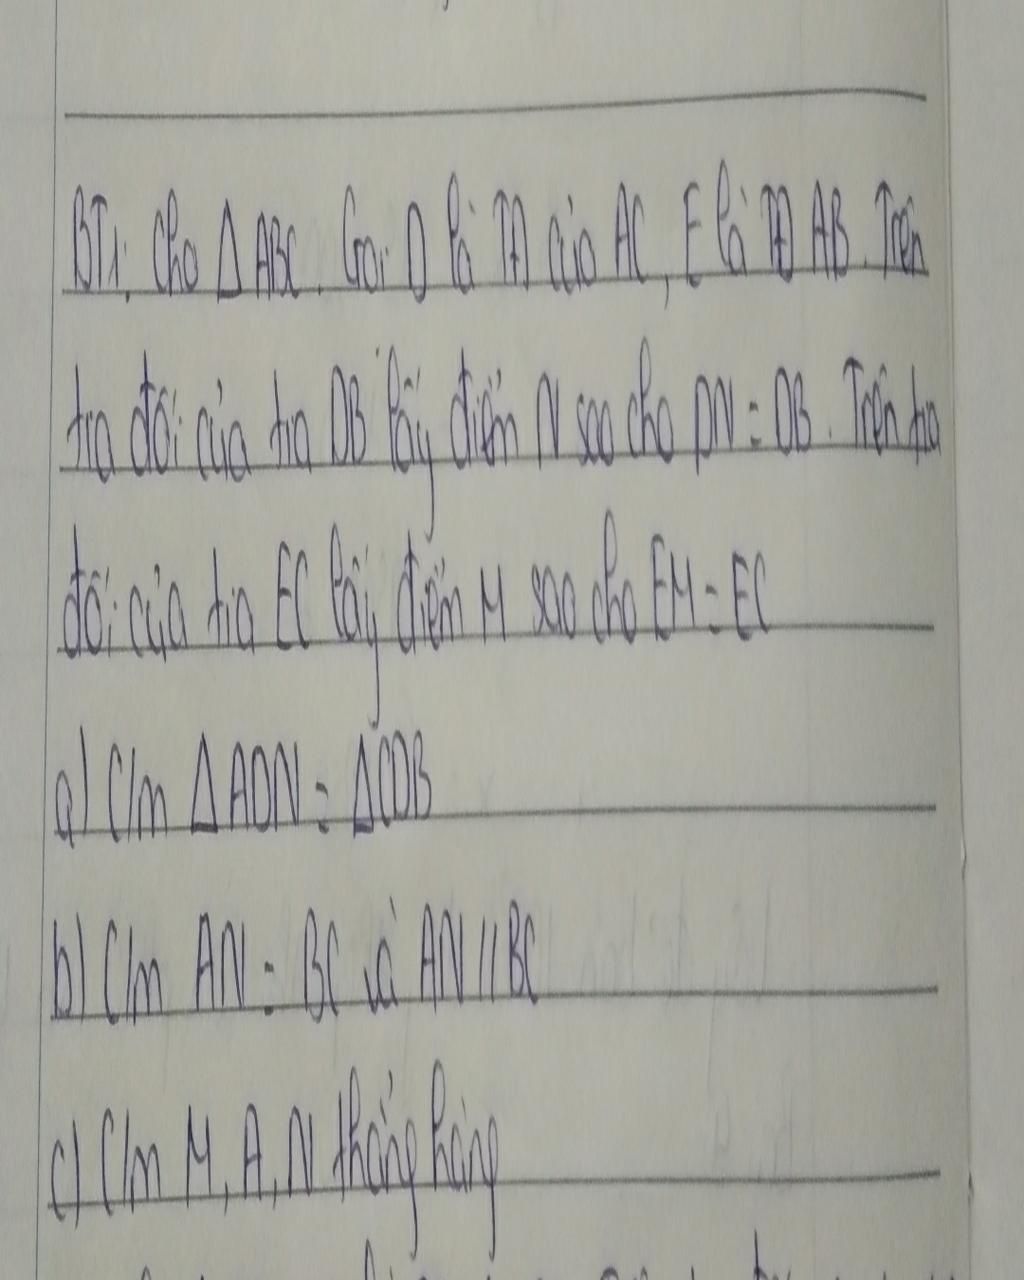 BT1: Cho Δ ABC. Gọi D là TĐ của AC, E là TĐ AB. Trên
tia đối của tia DB lấy điểm N sao cho DN = DB. Trên tia
đối của tia EC lấy điểm M sao cho EM = EC
a) C/m Δ ADN = ΔCDB
b) C/m AN = BC và AN // BC
c) C/m M, A, N thẳng hàng